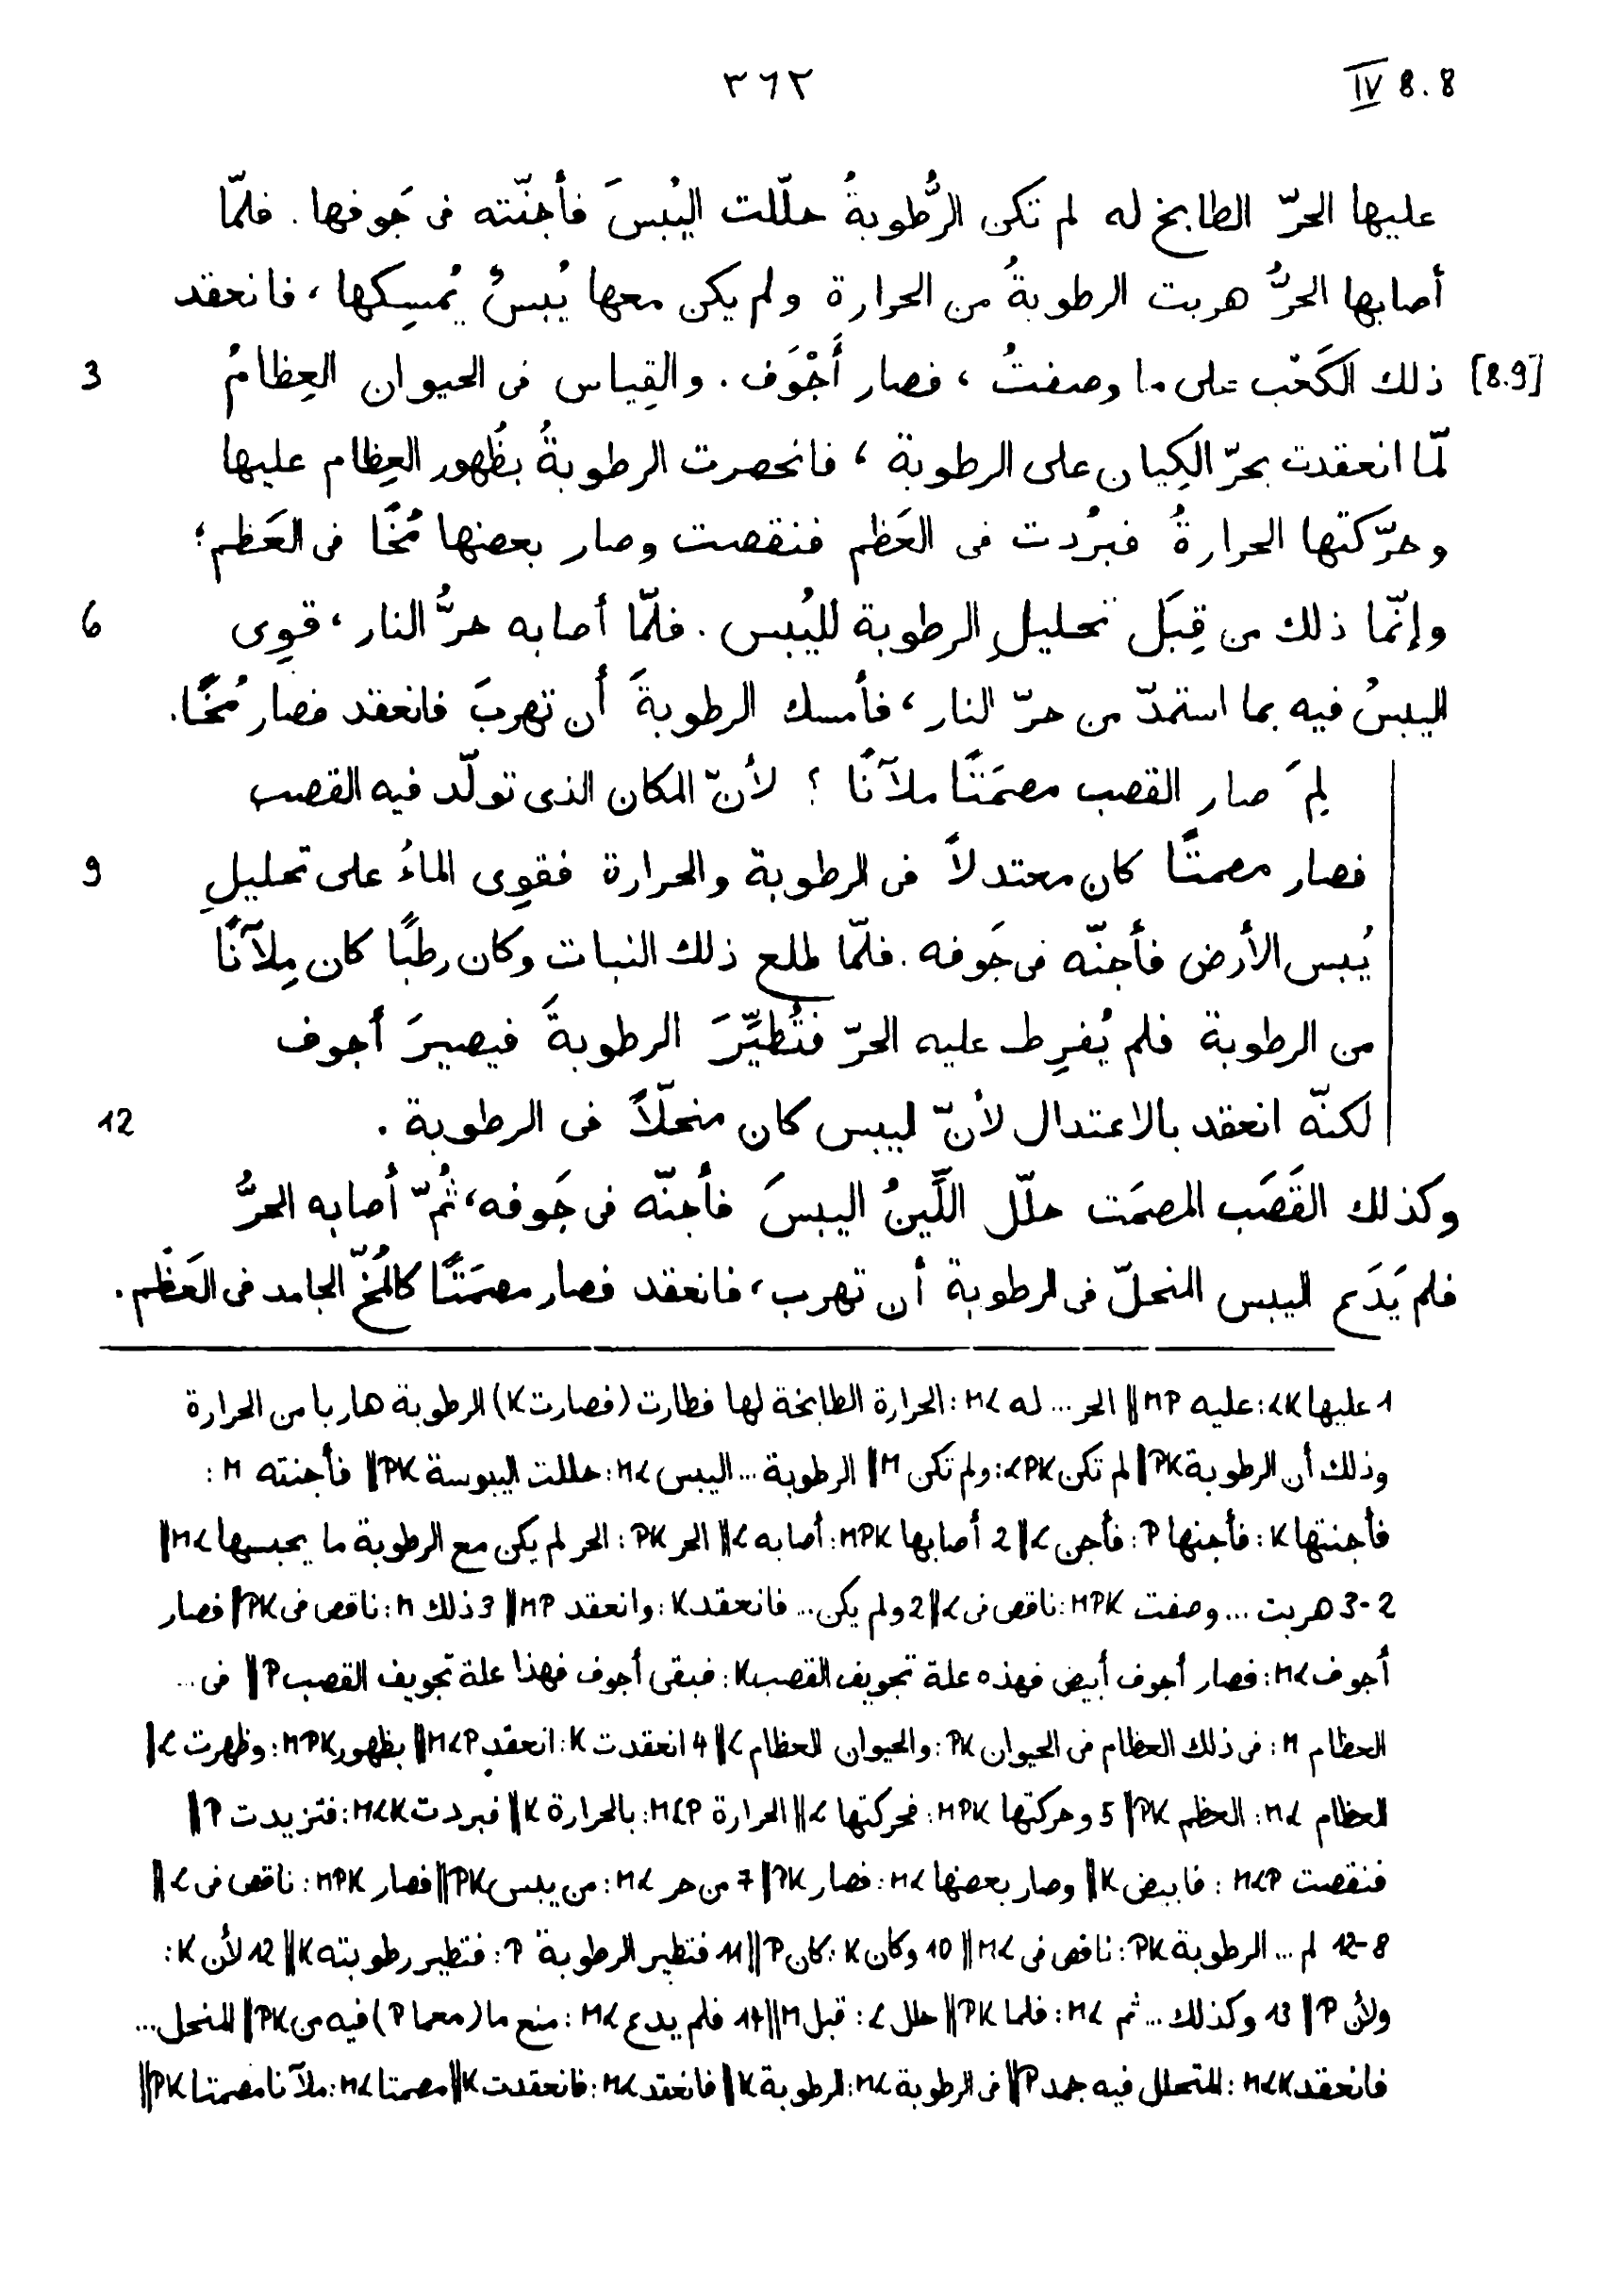 ٣٦٢ IV 8.8
عليها الحرّ الطابخ له لم تكن الرُّطوبةُ حلّلت اليُبسَ فأجنّته فى جَوفها. فلمّا
أصابها الحرُّ هربت الرطوبةُ من الحرارة ولم يكن معها يُبسٌ يُمسِكها، فانعقد
[8.9] ذلك الكَعْب على ما وصفتُ، فصار أَجْوَف. والقِياس فى الحيوان العِظامُ 3
لمّا انعقدت بحرّ الكِيان على الرطوبة، فانحصرت الرطوبةُ بظُهور العِظام عليها
وحرّكتها الحرارةُ فبرُدت فى العَظم فنقصت وصار بعضها مُخًّا فى العَظم؛
وإنّما ذلك من قِبَل تحليلِ الرطوبة لليُبس. فلمّا أصابه حرُّ النار، قوِى 6
اليبسُ فيه بما استمدّ من حرّ النار، فأمسك الرطوبةَ أن تهربَ فانعقد فصار مُخًّا.
لِمَ صار القصب مصمَتًا ملآنًا؟ لأنّ المكان الذى تولّد فيه القصب
فصار مصمتًا كان معتدلاً فى الرطوبة والحرارة فقوِى الماءُ على تحليلِ 9
يُبس الأرض فأجنّه فى جَوفه. فلمّا طلع ذلك النبات وكان رطبًا كان مِلآنًا
من الرطوبة فلم يُفرِط عليه الحرّ فتُطيِّرَ الرطوبةَ فيصيرَ أجوف
لكنّه انعقد بالاعتدال لأنّ ليبس كان منحلّاً فى الرطوبة. 12
وكذلك القَصَب المصمَت حلّل اللَّينُ اليبسَ فأجنّه فى جَوفه، ثُمّ أصابه الحرُّ
فلم يَدَع اليبس المنحلّ فى الرطوبة أن تهرب، فانعقد فصار مصمَتًا كالمُخّ الجامد فى العَظْم.
1 عليها L K: عليه MP || الحر... له M L: الحرارة الطابخة لها فطارت (فصارت K) الرطوبة هاربا من الحرارة
وذلك أن الرطوبة PK || لم تكن L PK: ولم تكن M || الرطوبة... اليبس M L: حللت اليبوسة PK || فأجنته M:
فأجنتها K: فأجنها P: فأجن L || 2 أصابها MPK: أصابه L || الحر PK: الحر لم يكن مع الرطوبة ما يحبسها M L ||
2-3 هربت... وصفت MPK: ناقص فى L || 2 ولم يكن... فانعقد K: وانعقد MP || 3 ذلك M: ناقص فى PK || فصار
أجوف M L: فصار أجوف أبيض فهذه علة تجويف القصب K: فبقى أجوف فهذا علة تجويف القصب P || فى...
العظام M: فى ذلك العظام فى الحيوان PK: والحيوان العظام L || 4 انعقدت K: انعقد M L P || بظهور MPK: وظهرت L ||
العظام M L: العظم PK || 5 وحركتها MPK: فحركتها L || الحرارة M L P: بالحرارة K || فبردت M L K: فتزيدت P ||
فنقصت M L P: فابيض K || وصار بعضها M L: فصار PK || 7 من حر M L: من يبس PK || فصار MPK: ناقص فى L ||
8-12 لم... الرطوبة PK: ناقص فى M L || 10 وكان K: كان P || 11 فتطير الرطوبة P: فتطير رطوبته K || 12 لأن K:
ولأن P || 13 وكذلك... ثم M L: فلما PK || حلل L: قبل M || 14 فلم يدع M L: منع ما (معما P) فيه من PK || المنحل...
فانعقد M L K: المتحلل فيه جمد P || فى الرطوبة M L: الرطوبة K || فانعقد M L: فانعقدت K || مصمتا M L: ملآنا مصمتا PK ||